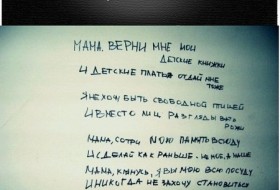 МАМА, ВЕРНИ МНЕ МОИ
ДЕТСКИЕ КНИЖКИ
И ДЕТСКИЕ ПЛАТЬЯ ОТДАЙ МНЕ
ТОЖЕ
Я НЕ ХОЧУ БЫТЬ СВОБОДНОЙ ПТИЦЕЙ
И ВМЕСТО ЛИЦ РАЗГЛЯДЫВАТЬ
РОЖИ
МАМА, СОТРИ МОЮ ПАМЯТЬ ВСЮДУ
И СДЕЛАЙ КАК РАНЬШЕ
МАМА, КЛЯНУСЬ, Я ВЫМОЮ ВСЮ ПОСУДУ
И НИКОГДА НЕ ЗАХОЧУ СТАНОВИТЬСЯ